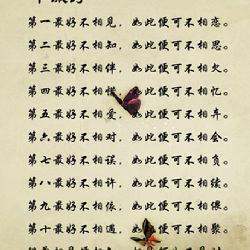 第一最好不相见，如此便可不相恋。
第二最好不相知，如此便可不相思。
第三最好不相伴，如此便可不相欠。
第四最好不相惜，如此便可不相忆。
第五最好不相爱，如此便可不相弃。
第六最好不相对，如此便可不相会。
第七最好不相误，如此便可不相负。
第八最好不相许，如此便可不相续。
第九最好不相依，如此便可不相偎。
第十最好不相遇，如此便可不相聚。